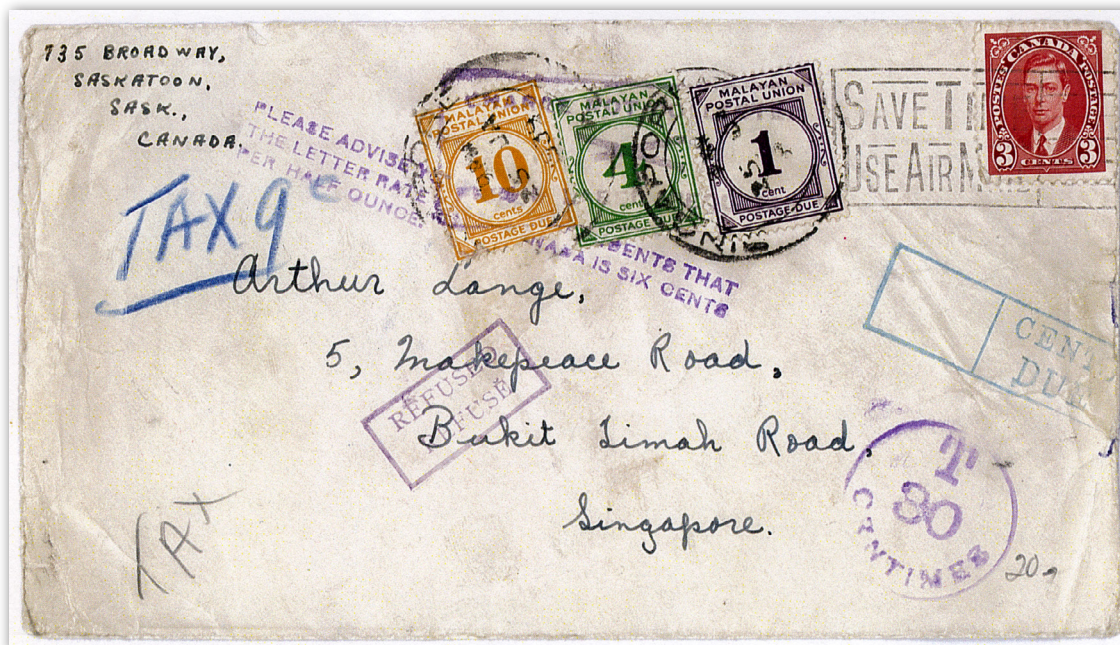 735 BROADWAY,
SASKATOON,
SASK.,
CANADA.
PLEASE ADVISE
THE LETTER RATE
PER HALF OUNCE.
THAT
IS SIX CENTS
MALAYAN
POSTAL UNION
10
cents
POSTAGE DUE
MALAYAN
POSTAL UNION
4
cents
POSTAGE DUE
MALAYAN
POSTAL UNION
1
cent
POSTAGE DUE
SAVE
USE AIR
CANADA
POSTES POSTAGE
3 CENTS 3
TAX 9c
Arthur Lange,
5, Makepeace Road,
Bukit Timah Road,
Singapore.
REFUSED
REFUSÉ
CENT
DUE
T
30
CENTIMES
TAX
20